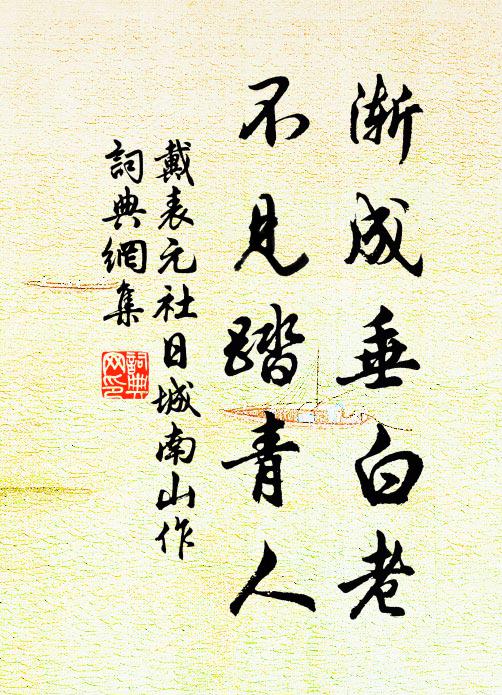 渐成垂白老
不見踏青人
戴表元社日城南山作
詞典網集
詞典网印